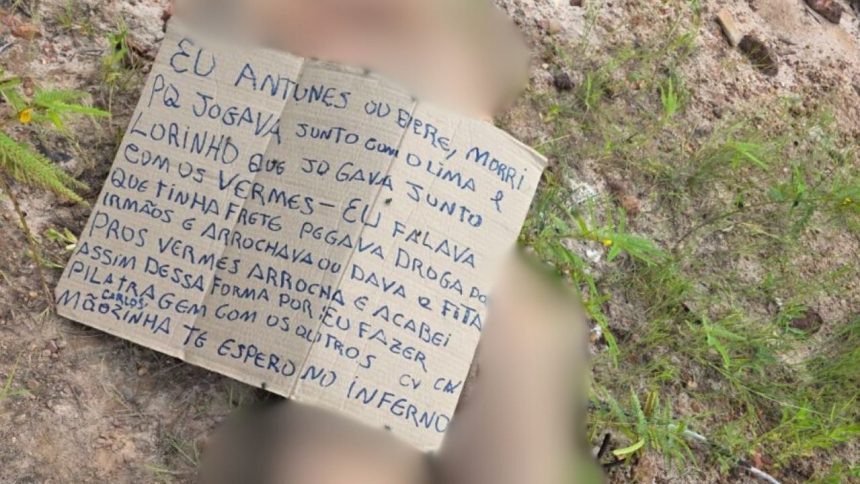 EU ANTUNES OU BEBERE, MORRI
PQ JOGAVA JUNTO COM O LIMA E
LORINHO QUE JOGAVA JUNTO
COM OS VERMES - EU FALAVA
QUE TINHA FRETE PEGAVA DROGA DO
IRMÃOS E ARROCHAVA OU DAVA A FITA
PROS VERMES ARROCHA E ACABEI
ASSIM DESSA FORMA POR EU FAZER
PILATRAGEM COM OS OUTROS CV
CARLOS
MÃOZINHA TE ESPERO NO INFERNO